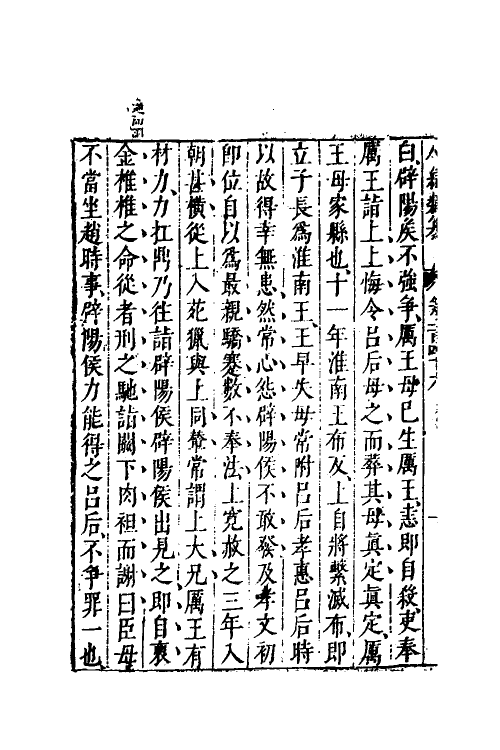 白辟陽矦不強争厲王母已生厲王恚即自殺吏奉
厲王詣上上悔令吕后母之而葬其母眞定眞定厲
王母家縣也十一年淮南王布反上自將擊滅布即
立子長爲淮南王王早失母常附吕后孝惠吕后時
以故得幸無患然常心怨辟陽侯不敢發及孝文初
即位自以爲最親驕蹇數不奉法上寛赦之三年入
朝甚横從上入苑獵與上同輦常謂上大兄厲王有
材力力扛鼎乃往詣辟陽侯辟陽侯出見之即自褏
金椎椎之命從者刑之馳詣闕下肉袒而謝曰臣母
不當坐趙時事辟陽侯力能得之吕后不争罪一也